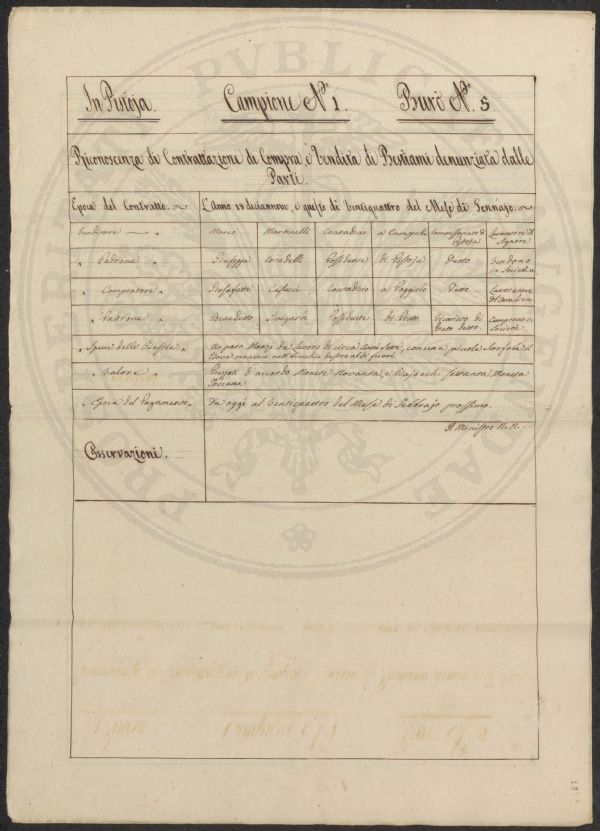 In Pistoja. Campione N.º 1. Burò N.º 5
Riconoscenza di Contrattazione di Compra, e Vendita di Bestiami denunziata dalle
Parti.
Epoca del Contratto. L'Anno 18 diciannove, e questo dì Ventiquattro del Mese di Gennajo.
Venditore Marco Martinelli Contadino a Campalle Lavoratore il
Signore
" Padrone Giuseppe Coradelli Possidente di Pistoja Detto Vendono
in Società
" Compratore Casucci Contadino a Poggiolo Detto Lavoratore
" Padrone Benedetto Possidente di Prato Vicariato di
Prato detto. Comprano in
Società
" Specie delle Bestie Un paro Manzi da lavoro di circa Anni Sette, il
Bove mancino nell'orecchio destro al di fuori.
" Valore " d'accordo Monete Novanta, e Bajocchi Settanta Moneta
Toscana
" Epoca del Pagamento Da oggi al Ventiquattro del Mese di Febbrajo prossimo.
Il Ministro N. N.
Osservazioni.